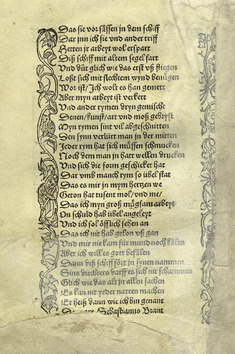 Das sie vor süssen jn dem schiff
Dar jnn ich sie vnd ander triff
Hetten jr arbeyt wol erspart
Diß schiff mit altem segel fart
Vnd důt glich wie das erst vß fliegen
Loßt sich mit slechtem wynd benügen
Wor ist / Jch wolt es han gemert
Aber myn arbeyt ist verkert
Vnd ander rymen dryn gemischt
Denen / kunst / art vnd moß gebryst
Myn rymen sint vil abgeschnitten
Den synn verlürt man jn der mitten
Jeder rym hat sich müssen schmucken
Noch dem man jn hatt wellen drucken
Vnd sich die form geschicket hat
Dar vmb manch rym so übel stat
Das es mir in mym hertzen we
Geton hat tusent mol / vnd me /
Das ich myn groß můgsam arbeyt
On schuld hab übel angeleyt
Vnd ich sol öfflich sehen an
Das ich nit hab gelon vß gan
Vnd mir nie kam für mund noch kälen
Aber ich will es gott befälen
Dann diß schiff fört jn synem nammen
Sins diechters darff es sich nit schammen
Glich wie das alt in allen sachen
Es kan nit yeder narren machen
Er heiß dann wie ich bin genant
Sebastianus Brant